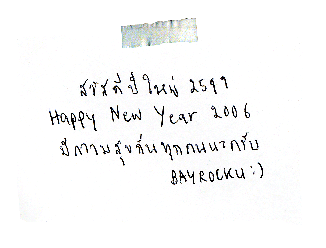 สวัสดีปีใหม่ 2549
Happy New Year 2006
มีความสุขกันทุกคนนะครับ
BAYROCKU :)